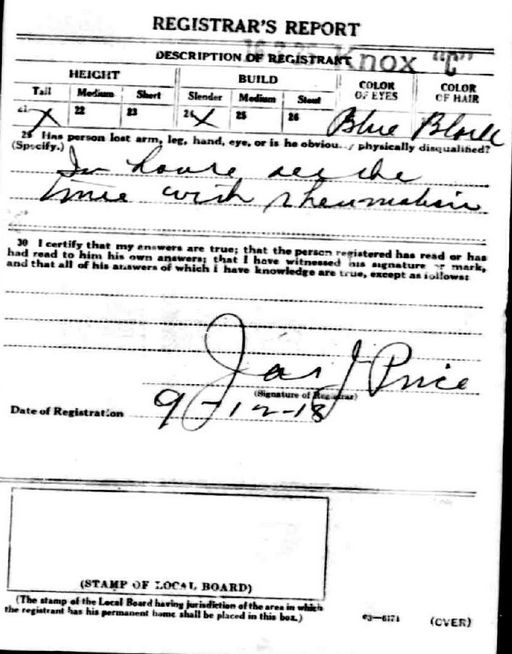 REGISTRAR'S REPORT
16 2 25 Knox "C"
DESCRIPTION OF REGISTRANT
HEIGHT BUILD COLOR OF EYES COLOR OF HAIR
Tall Medium Short Slender Medium Stout
21 X 22 23 24 X 25 26 Blue Black
29 Has person lost arm, leg, hand, eye, or is he obviously physically disqualified?
(Specify.)
In house all the
time with rheumatism
30 I certify that my answers are true; that the person registered has read or has
had read to him his own answers; that I have witnessed his signature or mark,
and that all of his answers of which I have knowledge are true, except as follows:
Jas J Price
(Signature of Registrar)
Date of Registration 9-12-18
(STAMP OF LOCAL BOARD)
(The stamp of the Local Board having jurisdiction of the area in which
the registrant has his permanent home shall be placed in this box.)
03—6171 (OVER)